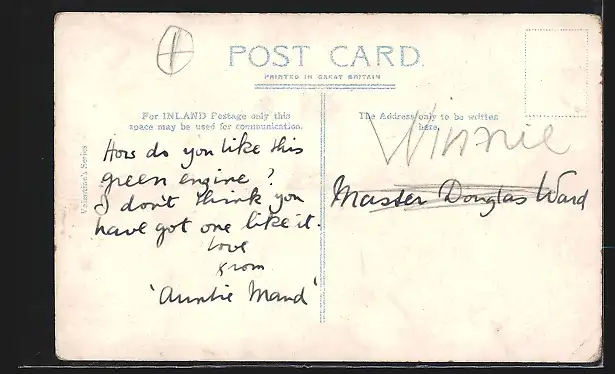 POST CARD.
PRINTED IN GREAT BRITAIN
For INLAND Postage only this
space may be used for communication.
The Address only to be written
here.
Valentine's Series
How do you like this
green engine?
I don't think you
have got one like it.
Love
from
'Auntie Maud'
Winnie
Master Douglas Ward